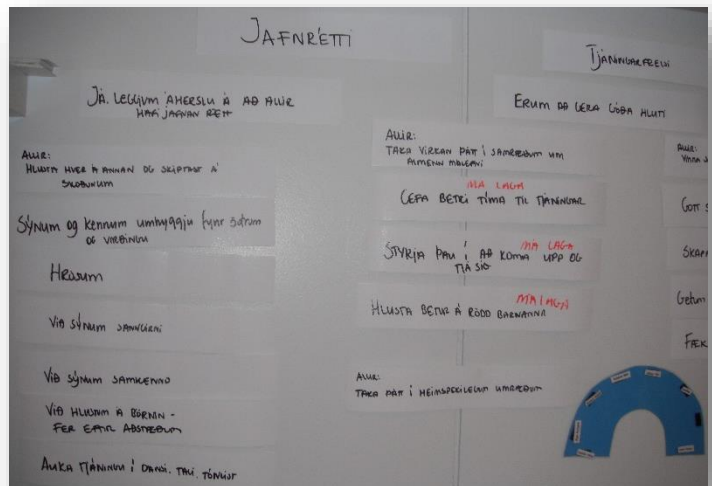 JAFNRÉTTI
JÁ. LEGGJUM ÁHERSLU Á AÐ ALLIR
HAFI JAFNAN RÉTT
ALLIR:
HLUSTA HVER Á ANNAN OG SKIPTAST Á
SKOÐUNUM
SÝNUM OG KENNUM UMHYGGJU FYRIR ÖÐRUM
OG VIRÐINGU
HRÓSUM
VIÐ SÝNUM SANNGIRNI
VIÐ SÝNUM SAMKENND
VIÐ HLUSUM Á BÖRNIN -
FER EFTIR AÐSTÆÐUM
AUKA TJÁNINGU Í DANSI. TALI. TÓNLIST
TJÁNINGARFRELSI
ERUM AÐ GERA GÓÐA HLUTI
ALLIR:
TAKA VIRKAN ÞÁTT Í SAMRÆÐUM UM
ALMENN MÁLEFNI
MÁ LAGA
GEFA BETRI TÍMA TIL TJÁNINGAR
MÁ LAGA
STYRJA ÞAU Í AÐ KOMA UPP OG
TJÁ SIG
MÁ LAGA
HLUSTA BETUR Á RÖDD BARNANNA
ALLIR:
TAKA ÞÁTT Í HEIMSPEKILEGUM UMRÆÐUM
ALLIR:
VINNA
GOTT
SKAPA
GETUM